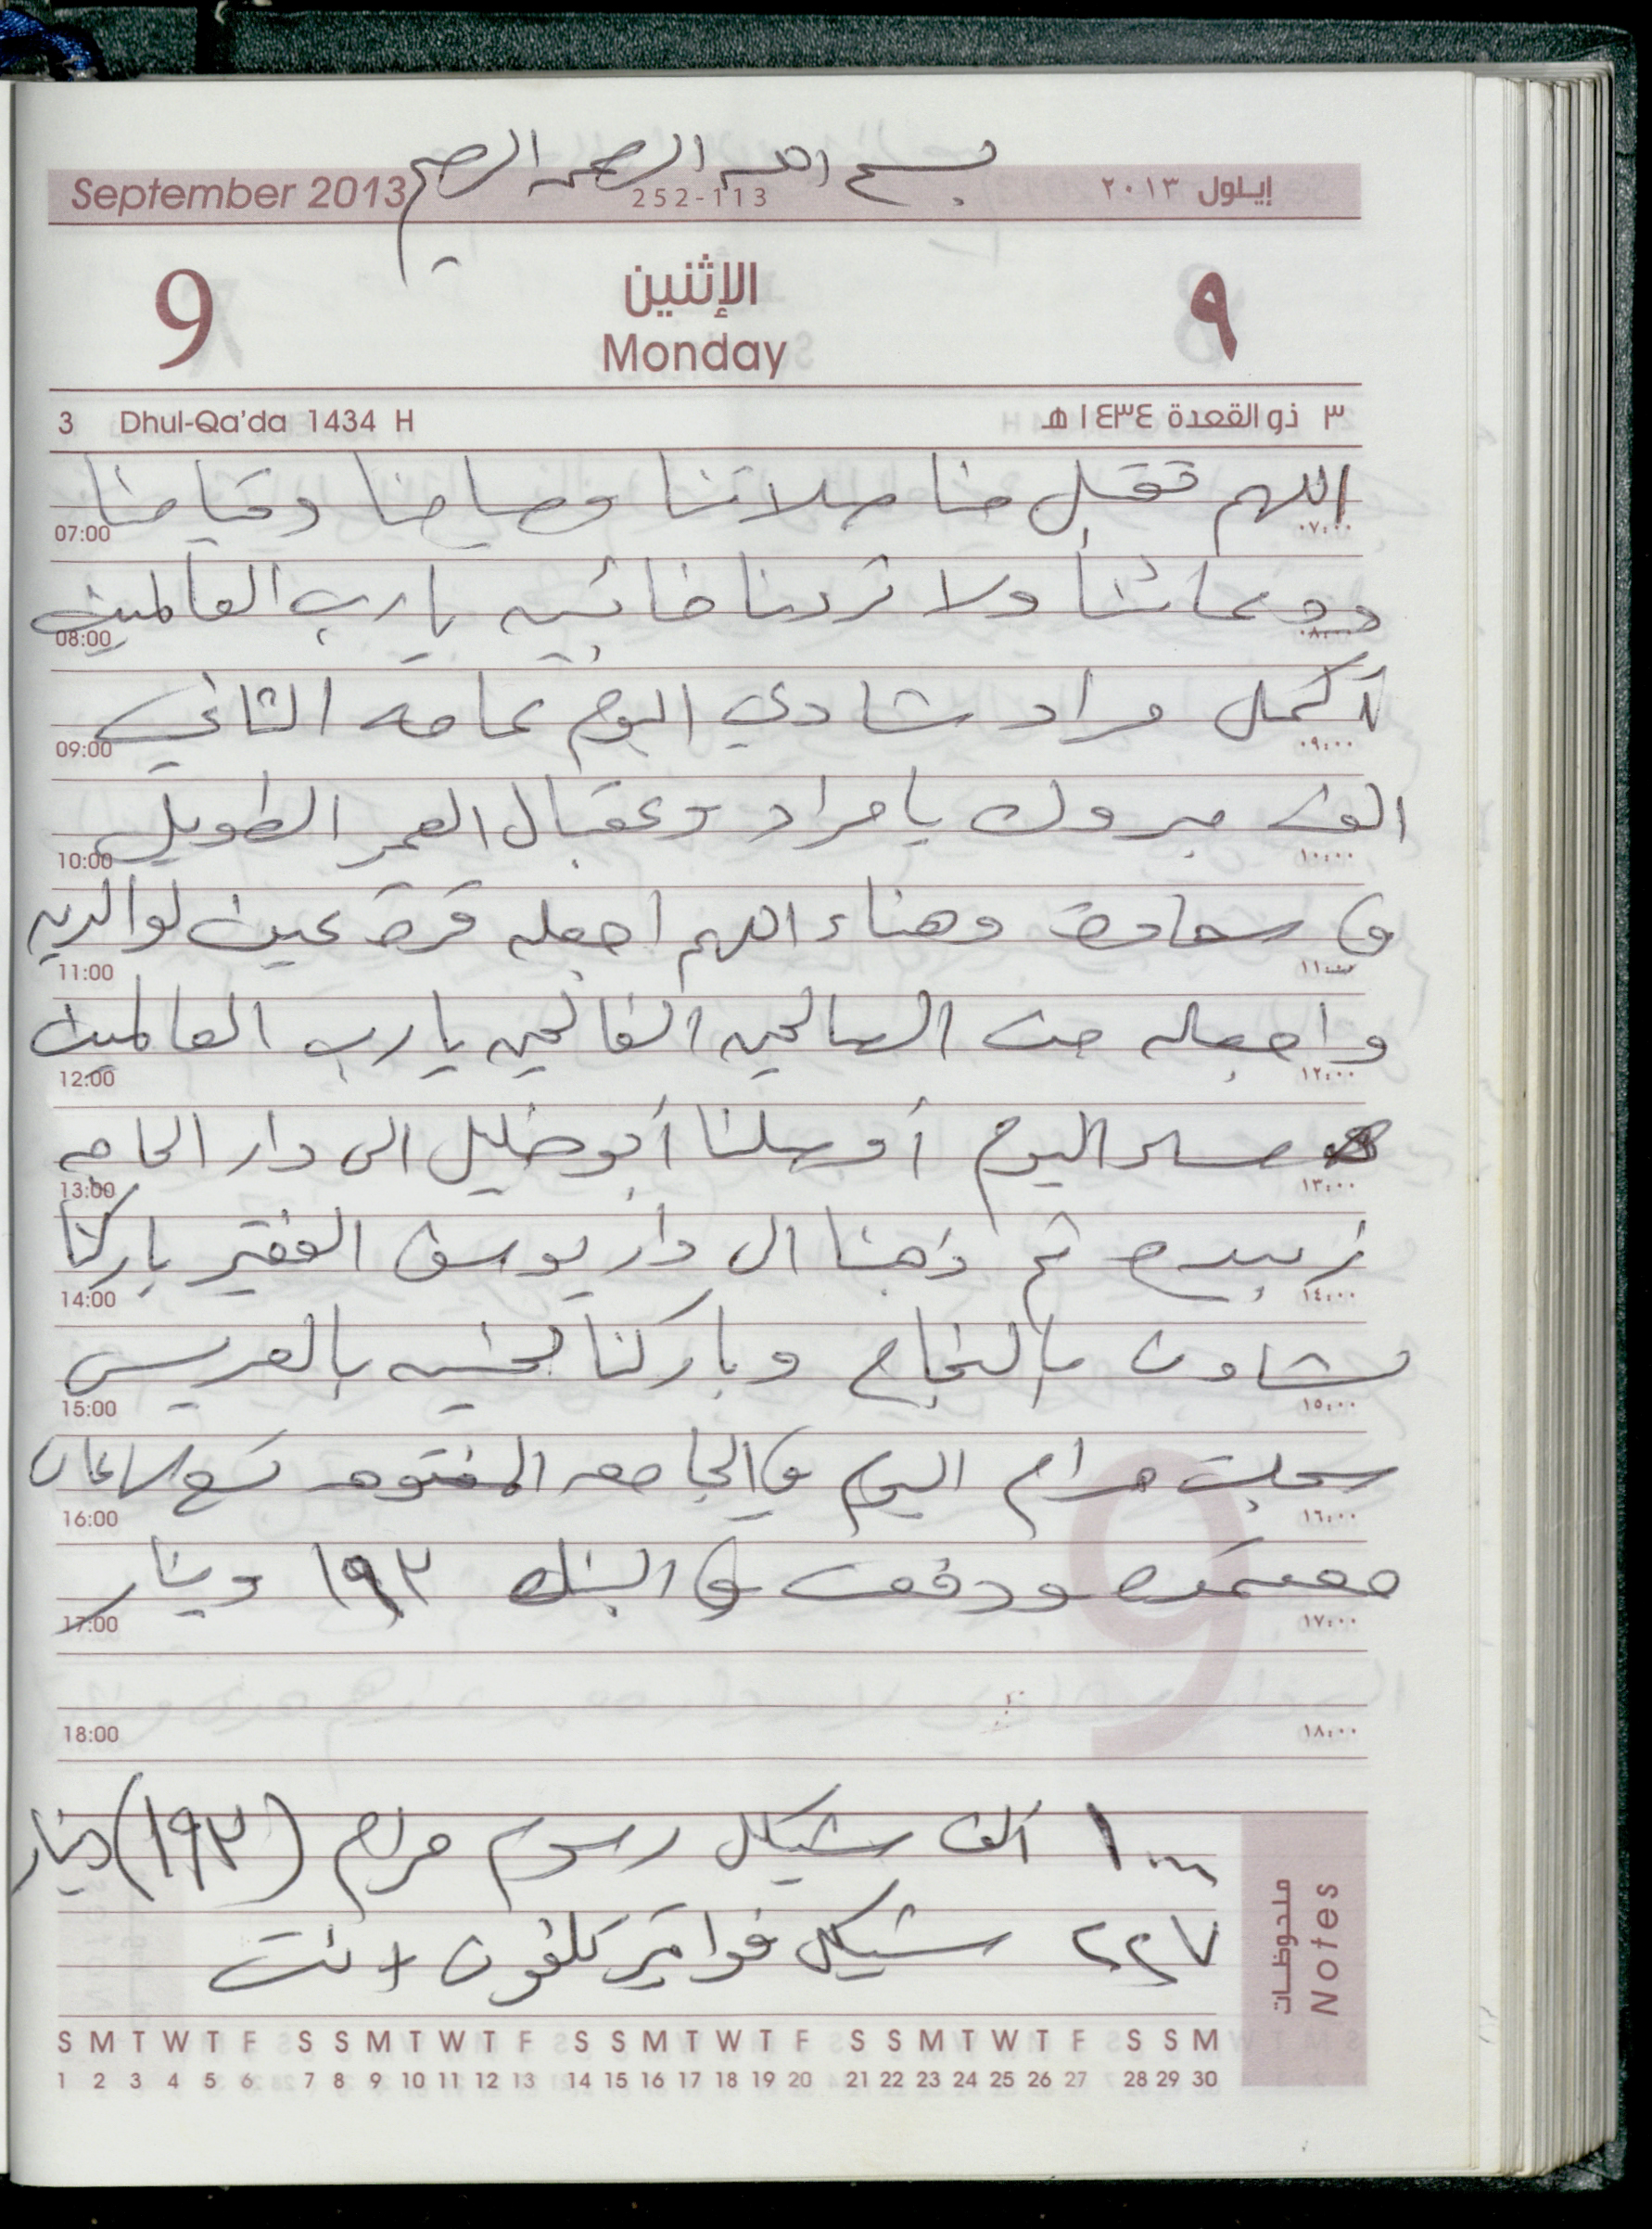 بسم الله الرحمن الرحيم
September 2013 252-113 إيلول ٢٠١٣
9 الإثنين ٩
Monday
3 Dhul-Qa'da 1434 H ٣ ذو القعدة ١٤٣٤ هـ
اللهم تقبل منا صلاتنا وصيامنا وقيامنا
07:00 ٠٧:٠٠
ودعائنا ولا تردنا خائبين يا رب العالمين
08:00 ٠٨:٠٠
أكمل مراد شادي اليوم عامه الثاني
09:00 ٠٩:٠٠
الف مبروك يا مراد وعقبال العمر الطويل
10:00 ١٠:٠٠
في سعادة وهناء اللهم اجعله قرة عين لوالديه
11:00 ١١:٠٠
واجعله من الصالحين الفالحين يا رب العالمين
12:00 ١٢:٠٠
اليوم أوصلنا أبو خليل الى دار الحاجه
13:00 ١٣:٠٠
زبيده ثم ذهبنا الى دار يوسف الفقير باركنا
14:00 ١٤:٠٠
بالنجاح وباركنا بالعريس
15:00 ١٥:٠٠
سجلت مرام اليوم في الجامعه المفتوحه تسع ساعات
16:00 ١٦:٠٠
معتمده ودفعت في البنك ١٩٣ دينار
17:00 ١٧:٠٠
18:00 ١٨:٠٠
١٠٠٠ ألف شيكل رسوم مرام (١٩٣) دينار
٢٢٧ شيكل فواتير تلفون + نت
ملحوظات Notes
S M T W T F S S M T W T F S S M T W T F S S M T W T F S S M
1 2 3 4 5 6 7 8 9 10 11 12 13 14 15 16 17 18 19 20 21 22 23 24 25 26 27 28 29 30